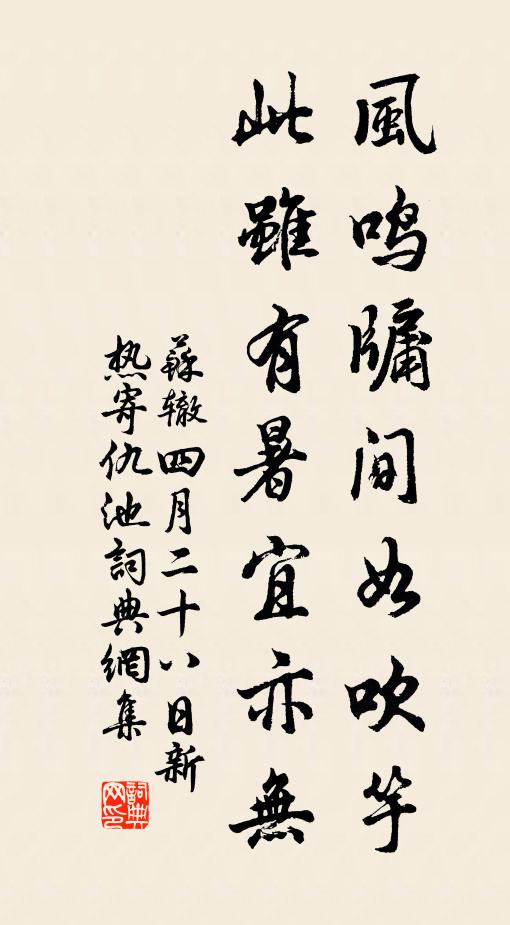 風鸣牖间如吹竽
此雖有暑宜亦無
蘇辙四月二十八日新
热寄仇池詞典網集
詞典网印